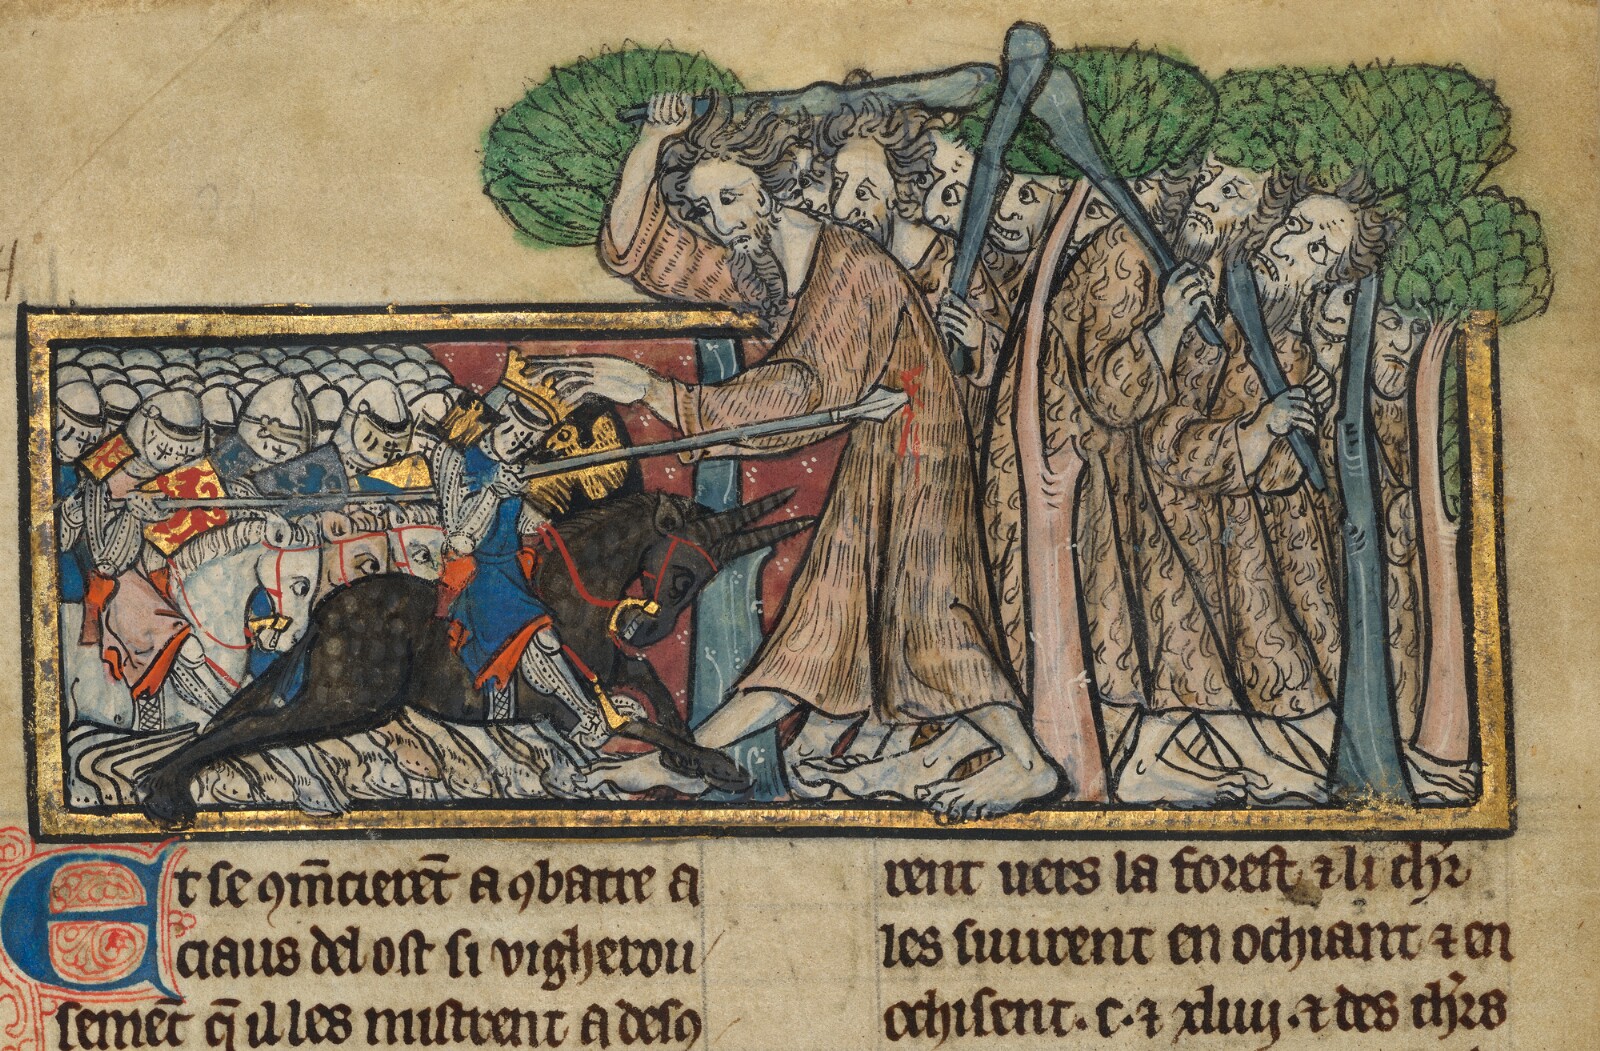 Et se ꝯm̄cierēt a ꝯbatre a
ciaus del ost si vigherou
semēt q̄ il les mistrent a desꝯ
rent uers la forest ⁊ li chꝛ̄
les suuirent en ochiant ⁊ en
ochisent · c · ⁊ xluij · ⁊ des chꝛ̄s